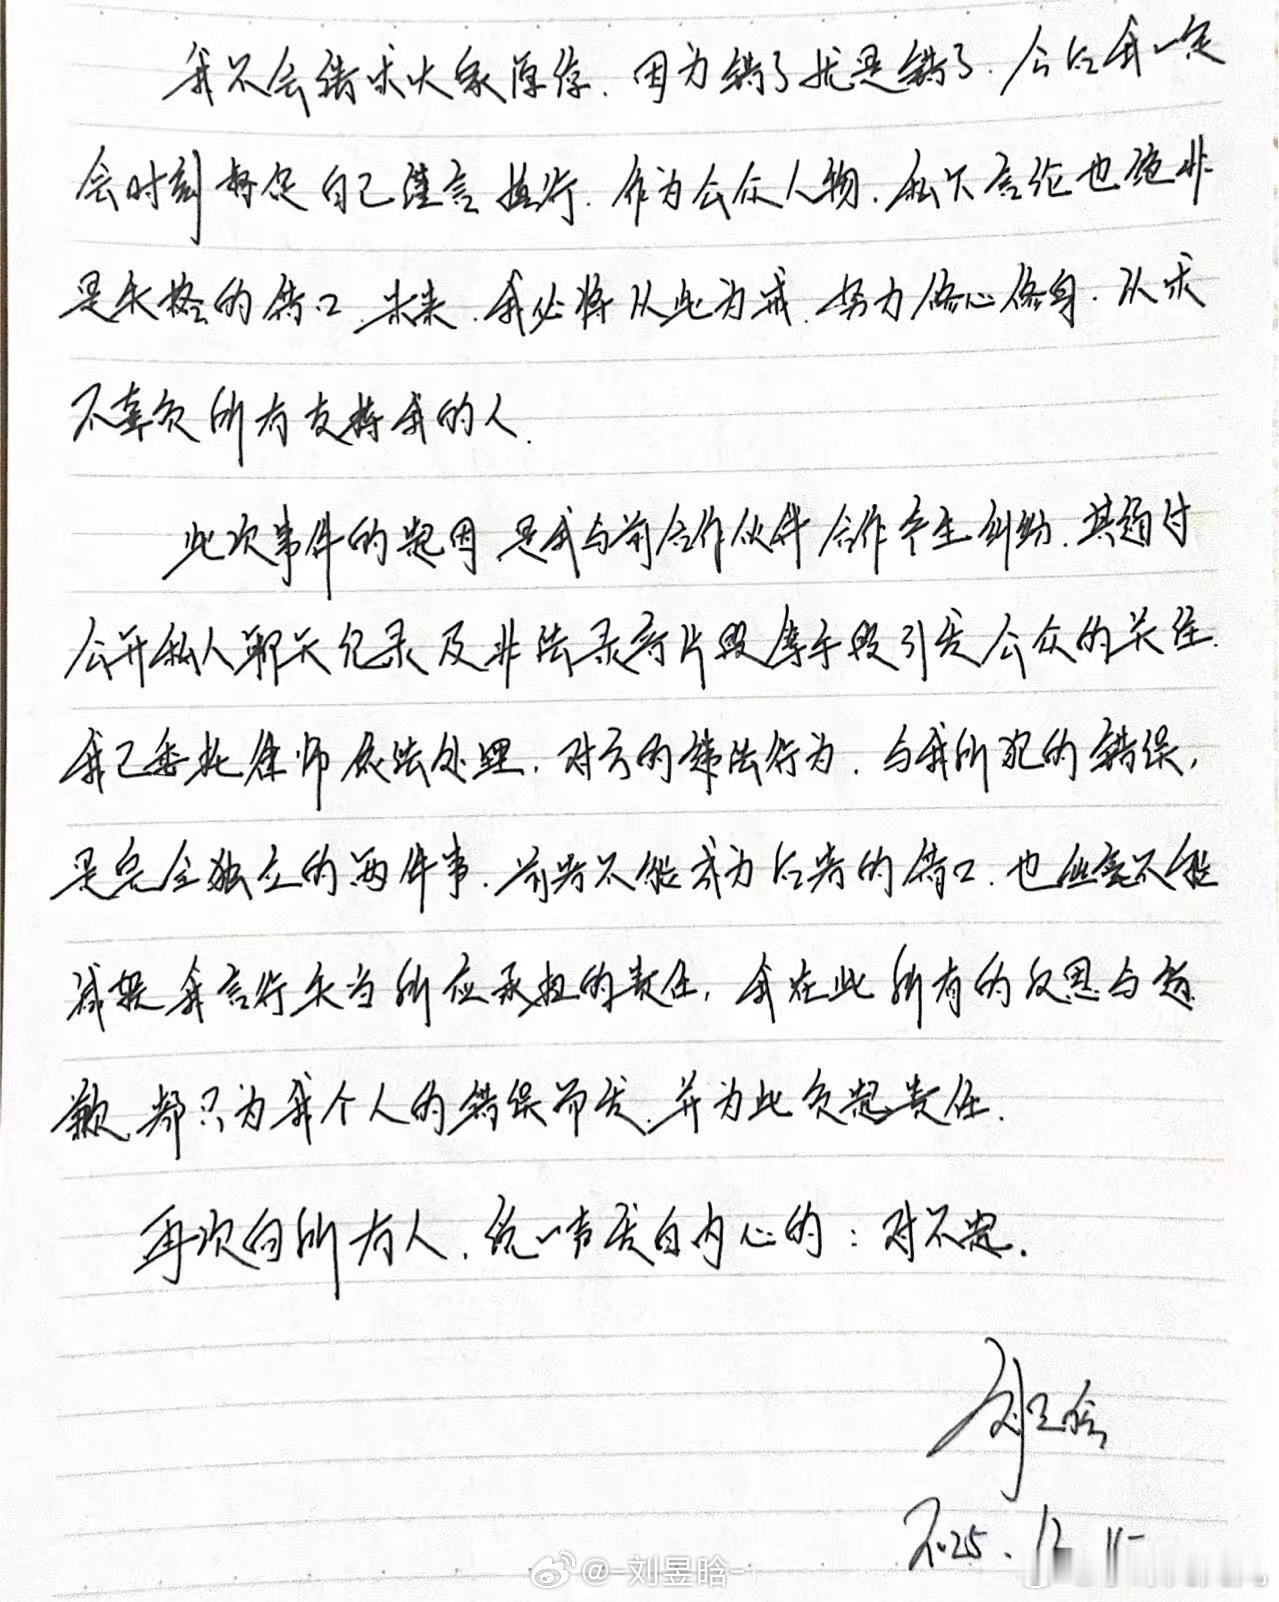 我不会请求大家原谅,因为错了就是错了.今后我一定
会时刻督促自己谨言慎行.作为公众人物,私下言论也绝非
是失格的借口.未来,我必将以此为戒,努力修心修身.以求
不辜负所有支持我的人.
此次事件的起因是我与前合作伙伴合作产生纠纷,其通过
公开私人聊天记录及非法录音片段等手段引发公众的关注.
我已委托律师依法处理.对方的违法行为,与我所犯的错误,
是完全独立的两件事.前者不能成为后者的借口.也丝毫不能
减轻我言行失当所应承担的责任,我在此所有的反思与道
歉,都只为我个人的错误而发,并为此负起责任.
再次向所有人,说一声发自内心的:对不起.
刘昱晗
2025.12.11
@-刘昱晗-